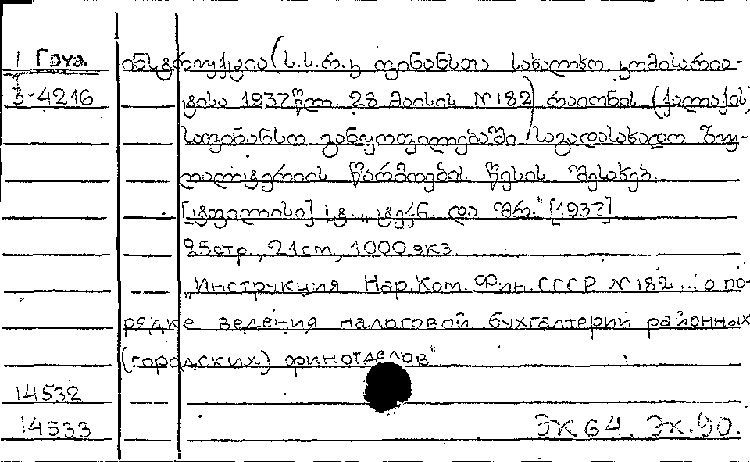 1 Груз. ინსტრუქცია (ს.ს.რ.კ ფინანსთა სახალხო კომისარია-
3-4216 ტისა 1937 წლ. 28 მაისის №182) რაიონის (ქალაქის)
საფინანსო განყოფილებაში საგადასახადო ბუღ-
ალტერიის წარმოების წესის შესახებ.
[ტფილისი] ი.გ. „ტექნ. და შრ." [1937]
25стр., 21см, 1000 экз.
„Инструкция Нар.Ком.Фин.СССР №182... о по-
рядке ведения налоговой бухгалтерии районных
(городских) финотделов"
14532
14533 ЭК 64. Эк.90.